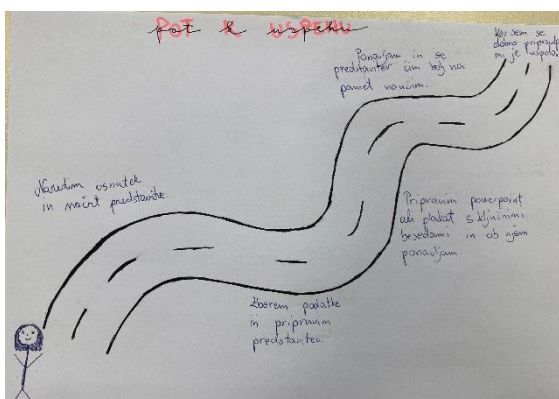 POT K USPEHU
pot k uspehu
Naredim osnutek
in načrt predstavitve.
Zberem podatke
in pripravim
predstavitev.
Pripravim powerpoint
ali plakat s ključnimi
besedami in ob njem
ponavljam.
Ponavljam in se
predstavitev čim bolj na
pamet naučim.
Ker sem se
dobro pripravila
mi je uspelo!